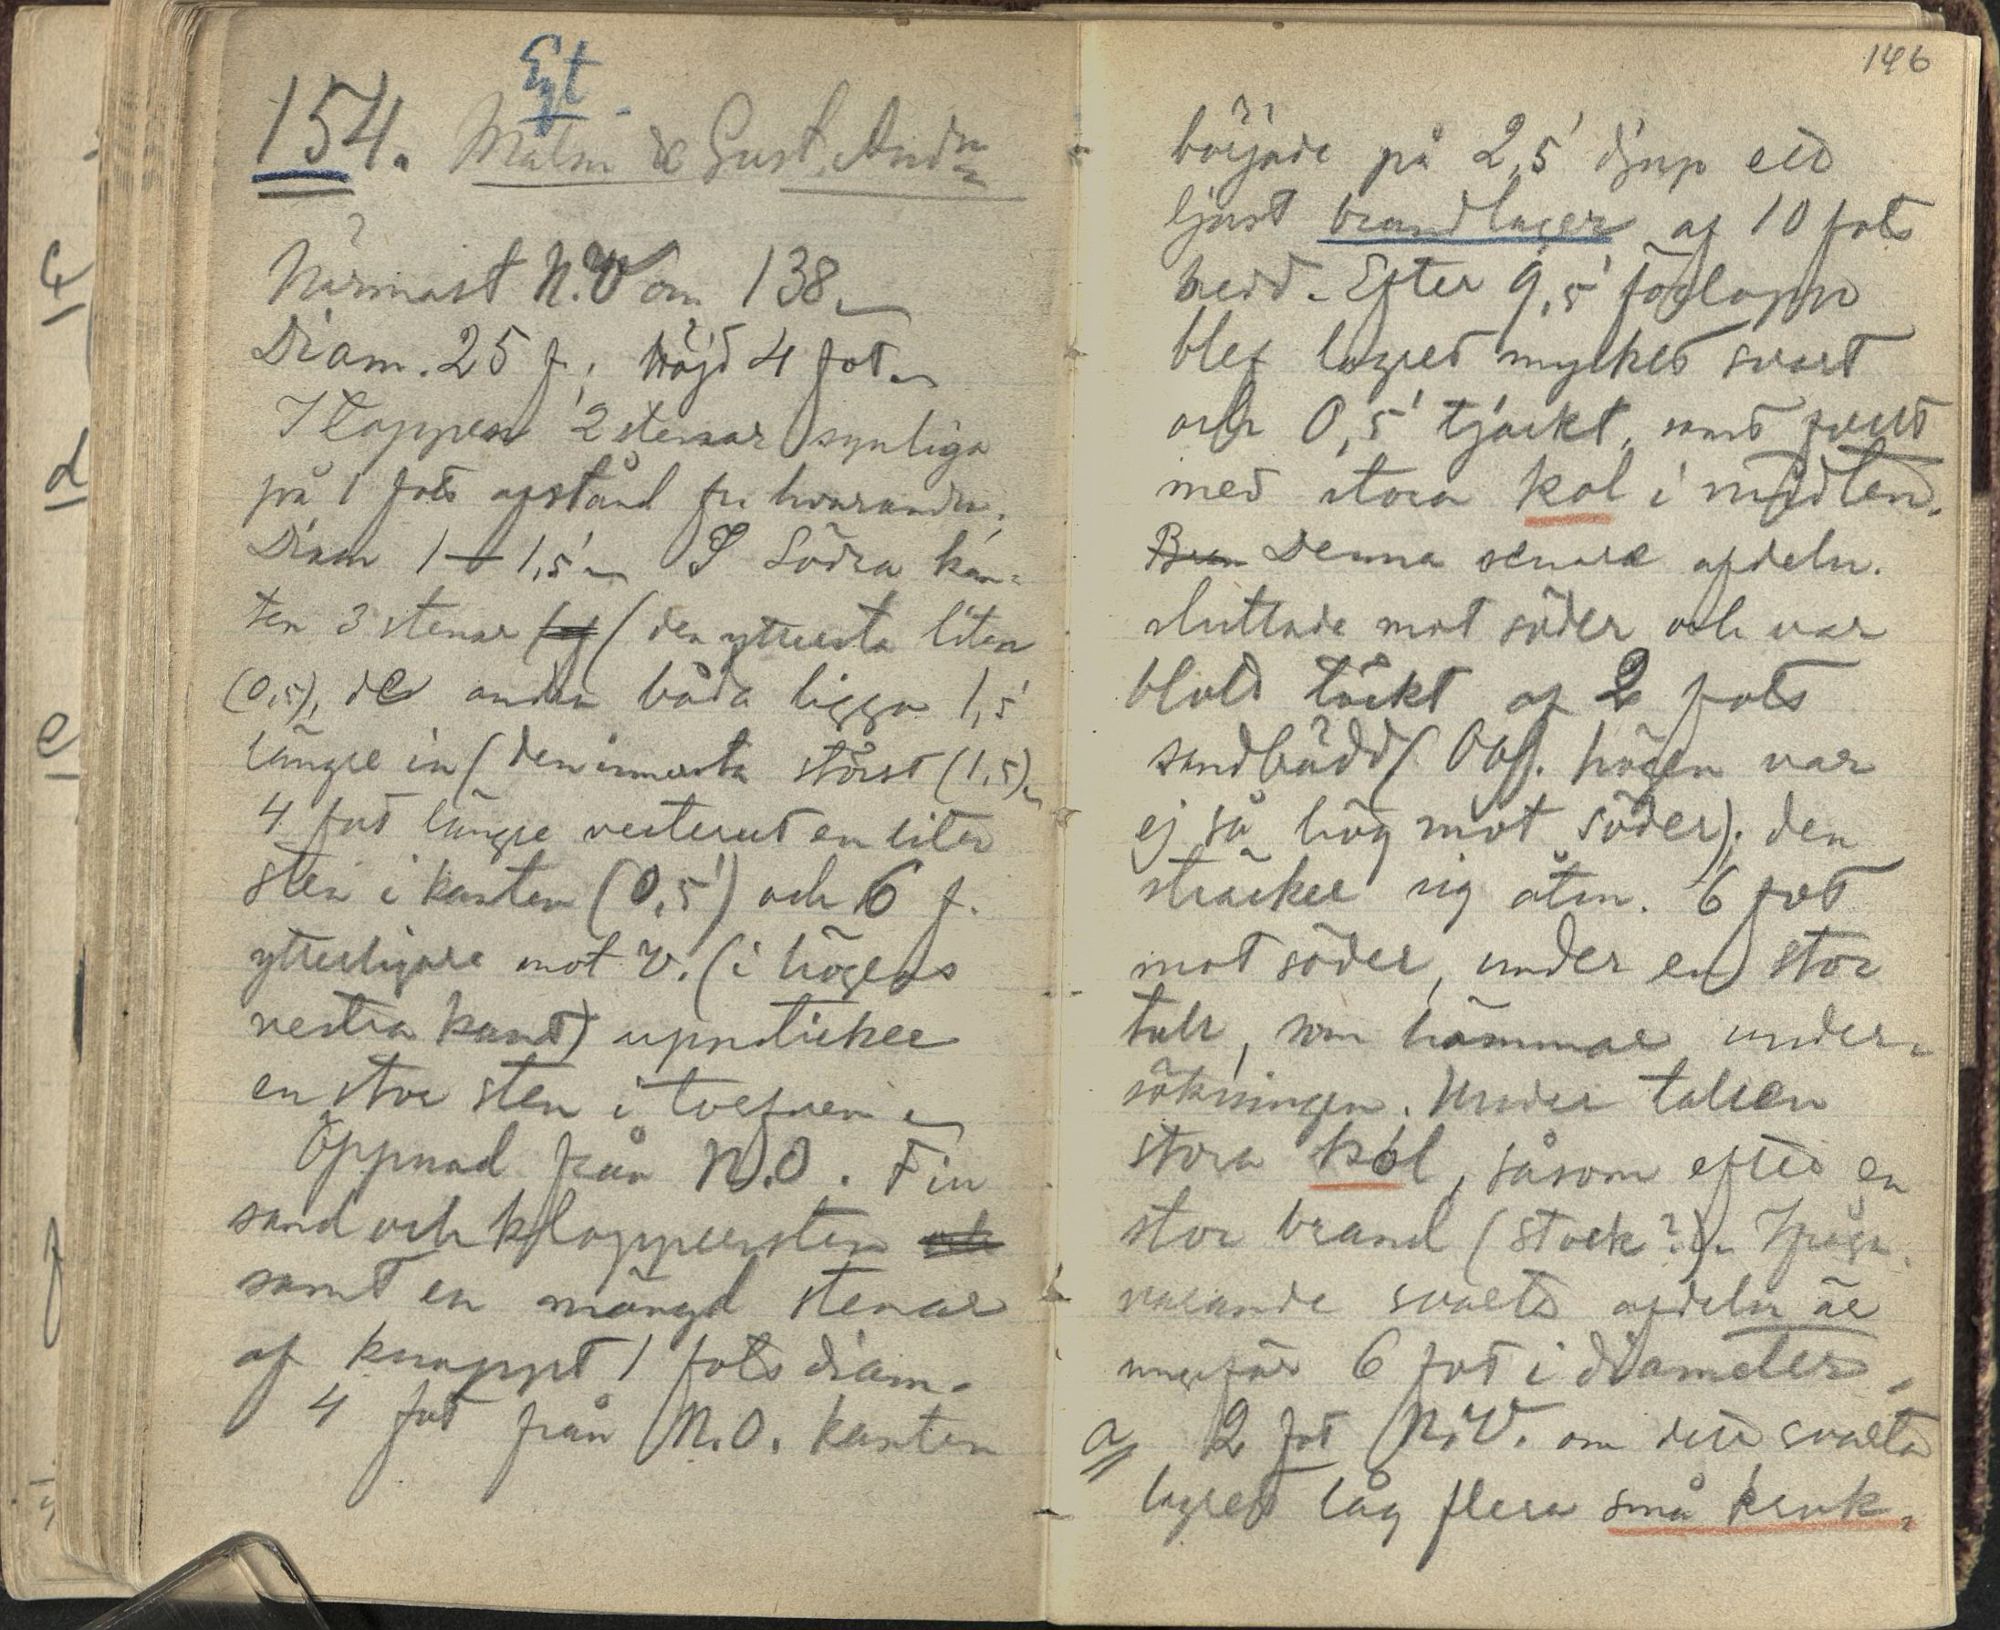 Eqt
154. Malm & Gust. Andrn
Närmast N.V om 138.
Diam. 25 f.; Höjd 4 fot.
I toppen 2 stenar synliga
på 1 fots afstånd fr. hvarandra.
Diam 1–1,5'. I Södra kan-
ten 3 stenar (den yttersta liten
(0,5), de andra båda ligga 1,5'
längre in (den innersta störst (1,5).
4 fot längre vesterut en liten
sten i kanten (0,5') och 6 f.
ytterligare mot V. (i högens
vestra kant) uppsticker
en stor sten i torfven.
Öppnad från N.O. Fin
sand och klappersten och
samt en mängd stenar
af knappt 1 fots diam.
4 fot från N.O. kanten
146
började på 2,5' djup ett
ljust brandlager af 10 fots
bredd. Efter 9,5' förlopp
blef lagret mycket svart
och 0,5' tjockt, samt fullt
med stora kol i midten.
Bran Denna senare afdeln.
sluttade mot söder och var
blott täckt af 2 fots
sandbädd (Obs. högen var
ej så hög mot söder); den
sträcker sig åtm. 6 fot
mot söder, under en stor
tall, som hämmar under-
sökningen. Under tallen
stora kol, såsom efter en
stor brand (stock?). Ifråga-
varande svarta afdeln är
ungefär 6 fot i diameter.
a 2 fot N.V. om det svarta
lagret låg flera små kruk-
c
d
e
f